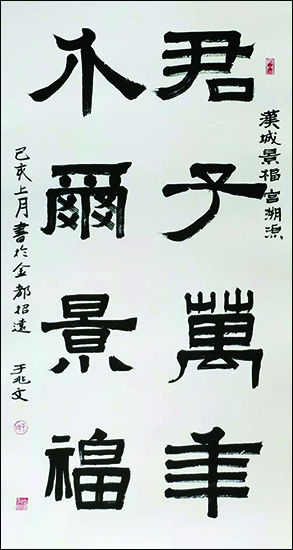 漢城景福宮溯源
君子萬年
介爾景福
己亥上月書於金都招遠
于兆文